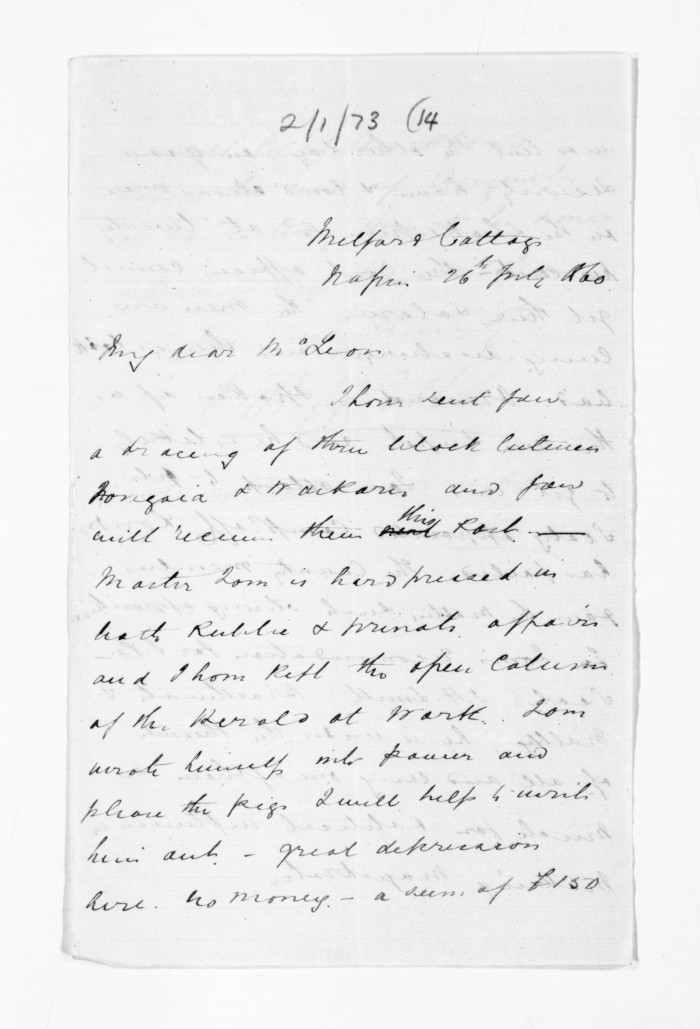 2/1/73 (14
Milford Cottage
Napier 26th July 1860.
My dear McLean
I have sent you
a tracing of the block between
Tongoia & Waikare and you
will receive them this Post —
Master Tom is hard pressed in
both Public & private affairs
and I have kept the open Column
of the Herald at work. Tom
wrote himself into power and
please the pigs I will help to write
him out. – great depression
here. no money. – a sum of £150